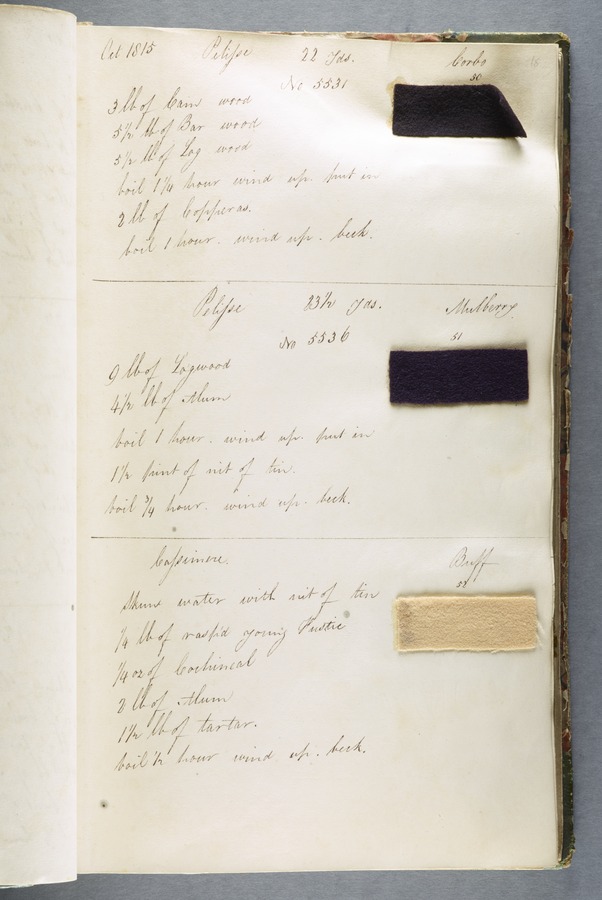 Oct 1815 Pelisse 22 yds. Corbo
No 5531 50
3 lb of Cam wood
5½ lb of Bar wood
5½ lb of Log wood
boil 1¼ hour wind up. put in
2 lb of Copperas.
boil 1 hour. wind up. beck.
Pelisse 23½ yds. Mulberry
No 5536 51
9 lb of Logwood
4½ lb of Alum
boil 1 hour. wind up. put in
1½ pint of nit of tin.
boil ¾ hour. wind up. beck.
Cassimere. Buff
52
skum water with nit of tin
¼ lb of raspd young Fustic
¼ oz of Cochineal
2 lb of Alum
1½ lb of tartar.
boil ½ hour wind up. beck.